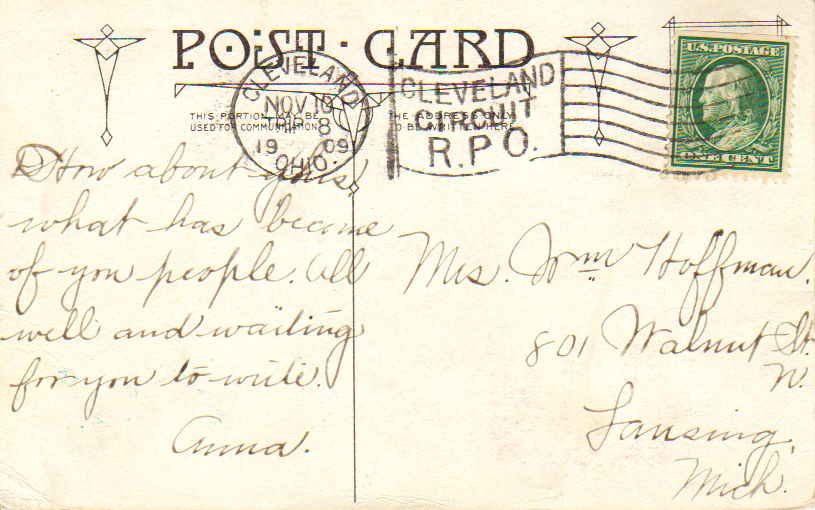 POST · CARD
THIS PORTION MAY BE
USED FOR COMMUNICATION
THE ADDRESS ONLY
TO BE WRITTEN HERE
CLEVELAND
NOV 10
8
1909
OHIO.
CLEVELAND
CIRCUIT
R.P.O.
U.S. POSTAGE
ONE CENT
How about you,
what has become
of you people. All
well and waiting
for you to write.
Anna.
Mrs. Wm Hoffman.
801 Walnut St.
N.
Lansing,
Mich.